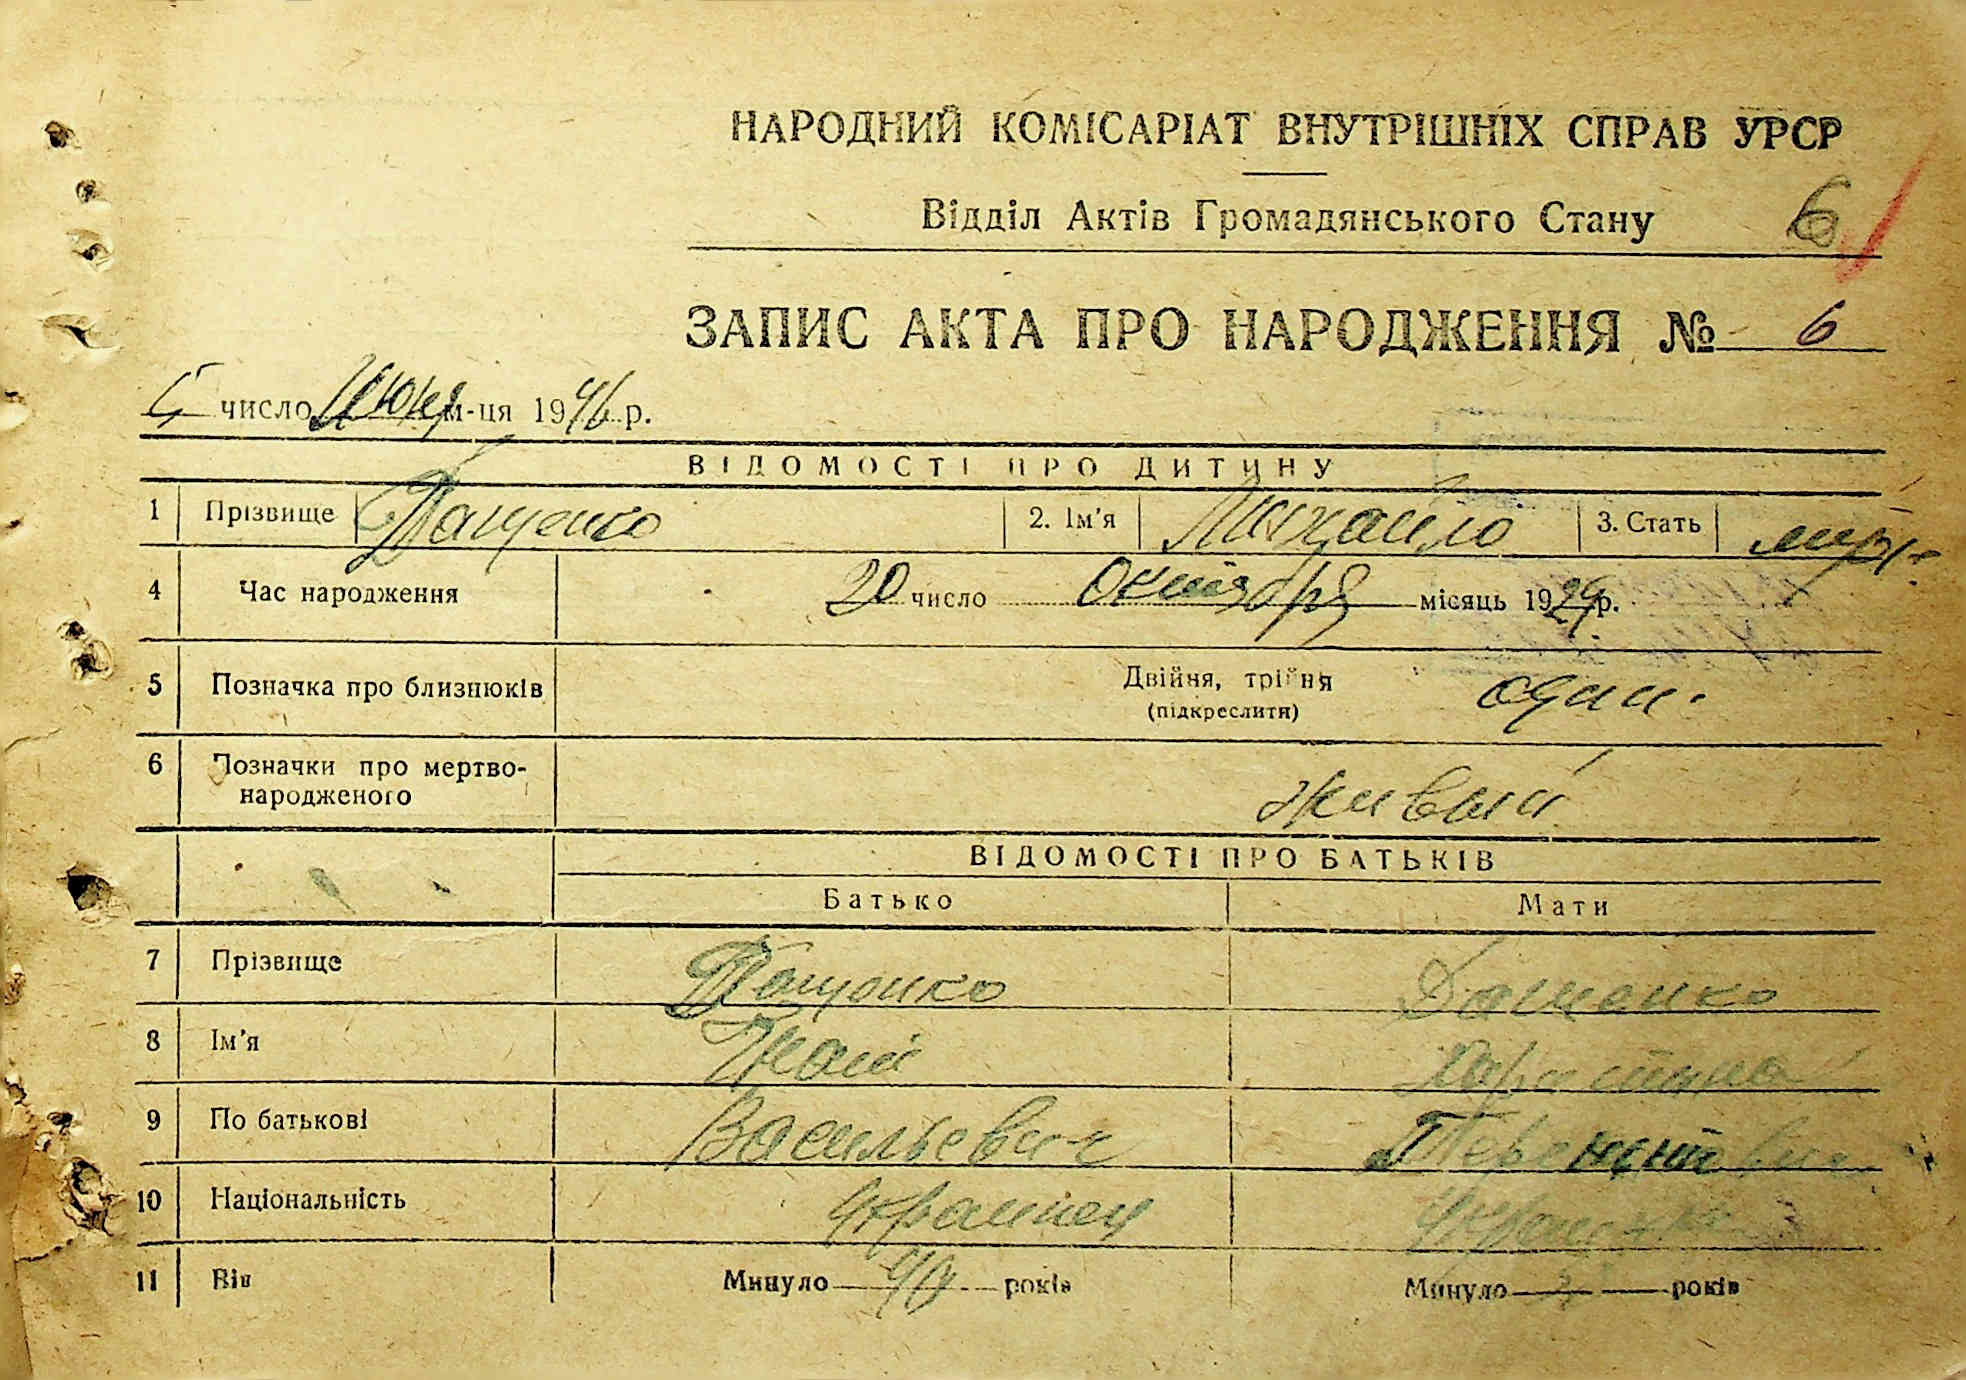 НАРОДНИЙ КОМІСАРІАТ ВНУТРІШНІХ СПРАВ УРСР
Відділ Актів Громадянського Стану 6
ЗАПИС АКТА ПРО НАРОДЖЕННЯ № 6
5 число Июня м-ця 1946 р.
ВІДОМОСТІ ПРО ДИТИНУ
1 Прізвище Пащенко 2. Ім'я Михайло 3. Стать муж.
4 Час народження 20 число Октября місяць 1929 р.
5 Позначка про близнюків Двійня, трійня один.
(підкреслити)
6 Позначки про мертво-
народженого живый
ВІДОМОСТІ ПРО БАТЬКІВ
Батько Мати
7 Прізвище Пащенко Пащенко
8 Ім'я Гнат
9 По батькові Васильевич
10 Національність Украинец Украинка
11 Вік Минуло 40 років Минуло років